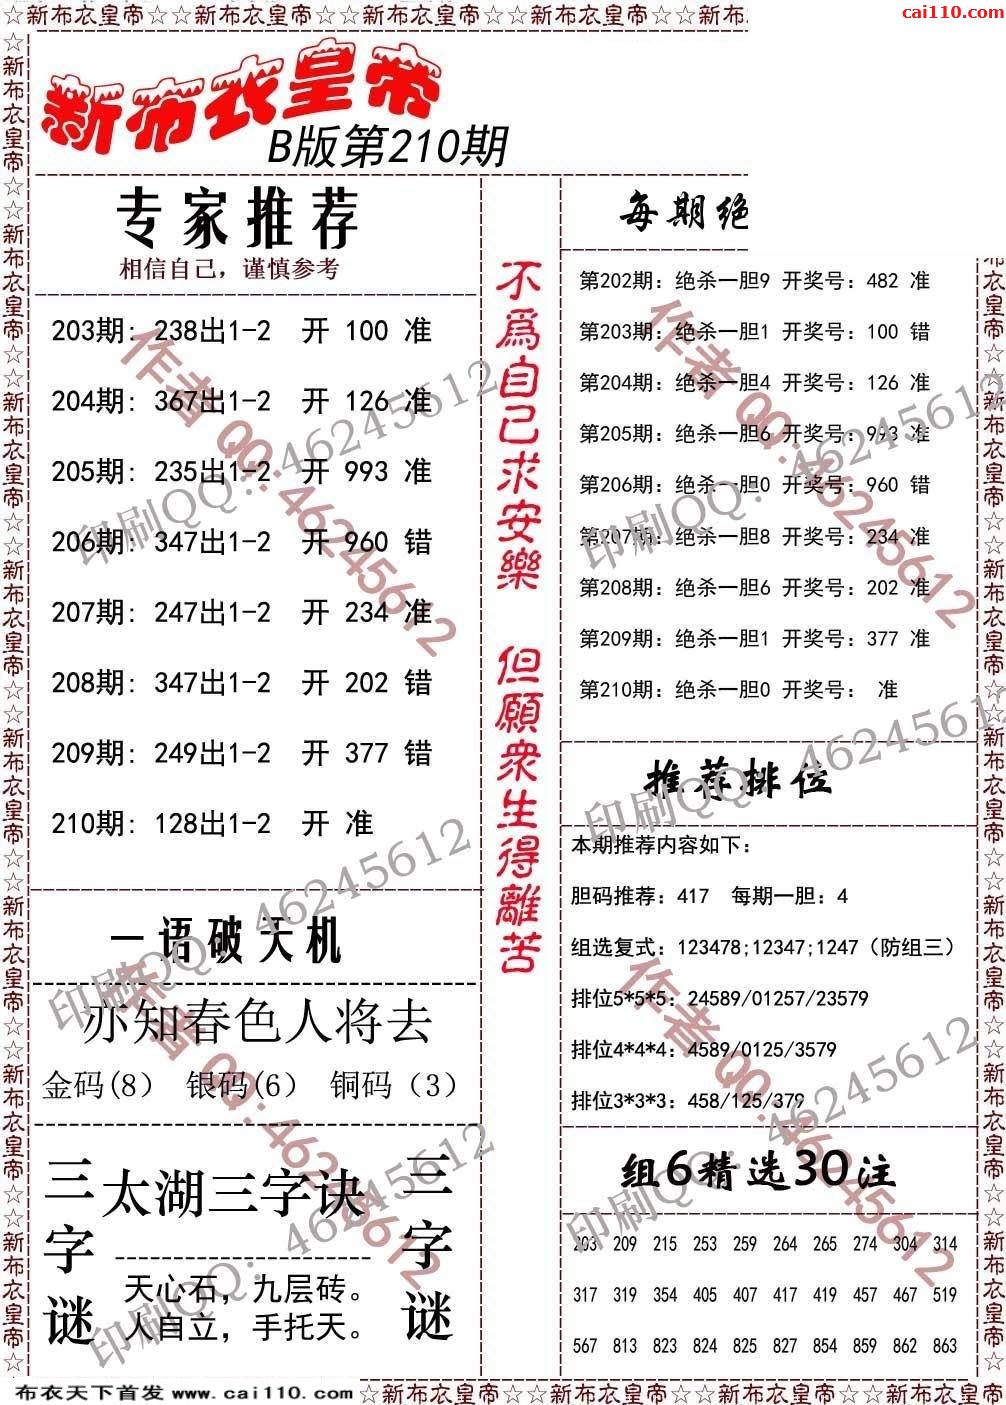 ☆新布衣皇帝☆新布衣皇帝☆新布衣皇帝☆新布衣皇帝☆新布衣皇帝☆新布
cai110.com
新布衣皇帝
B版第210期
专家推荐
相信自己，谨慎参考
203期: 238出1-2 开 100 准
204期: 367出1-2 开 126 准
205期: 235出1-2 开 993 准
206期: 347出1-2 开 960 错
207期: 247出1-2 开 234 准
208期: 347出1-2 开 202 错
209期: 249出1-2 开 377 错
210期: 128出1-2 开 准
一语破天机
亦知春色人将去
金码(8) 银码(6) 铜码（3）
三字谜
太湖三字诀
天心石，九层砖。
人自立，手托天。
三字谜
不為自己求安樂 但願眾生得離苦
每期绝
第202期: 绝杀一胆9 开奖号: 482 准
第203期: 绝杀一胆1 开奖号: 100 错
第204期: 绝杀一胆4 开奖号: 126 准
第205期: 绝杀一胆6 开奖号: 993 准
第206期: 绝杀一胆0 开奖号: 960 错
第207期: 绝杀一胆8 开奖号: 234 准
第208期: 绝杀一胆6 开奖号: 202 准
第209期: 绝杀一胆1 开奖号: 377 准
第210期: 绝杀一胆0 开奖号: 准
推荐排位
本期推荐内容如下:
胆码推荐: 417 每期一胆: 4
组选复式: 123478;12347;1247（防组三）
排位5*5*5: 24589/01257/23579
排位4*4*4: 4589/0125/3579
排位3*3*3: 458/125/379
组6精选30注
203 209 215 253 259 264 265 274 304 314
317 319 354 405 407 417 419 457 467 519
567 813 823 824 825 827 854 859 862 863
作者QQ:46245612
印刷QQ: 46245612
作者QQ:46245612
印刷QQ: 46245612
印刷QQ: 46245612
作者QQ:46245612
印刷QQ: 46245612
作者QQ:46245612
印刷QQ: 46245612
印刷QQ: 46245612
布衣天下首发 www.cai110.com
☆新布衣皇帝☆新布衣皇帝☆新布衣皇帝☆新布衣皇帝☆